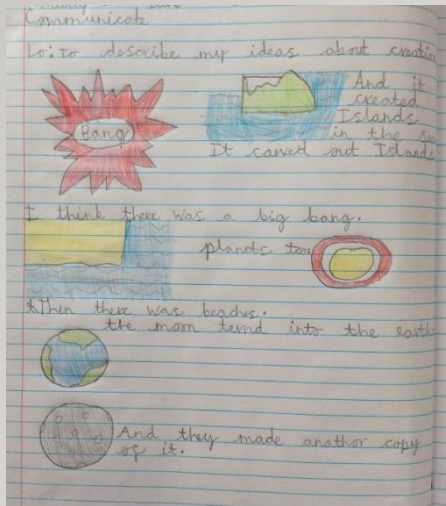 Communicate
Lo: To describe my ideas about creation
Bang
And it
created
Islands
in the sea
It carved out Islands
I think there was a big bang.
plants too
Then there was beaches.
the moon ternd into the earth
And they made anathor copy
of it.